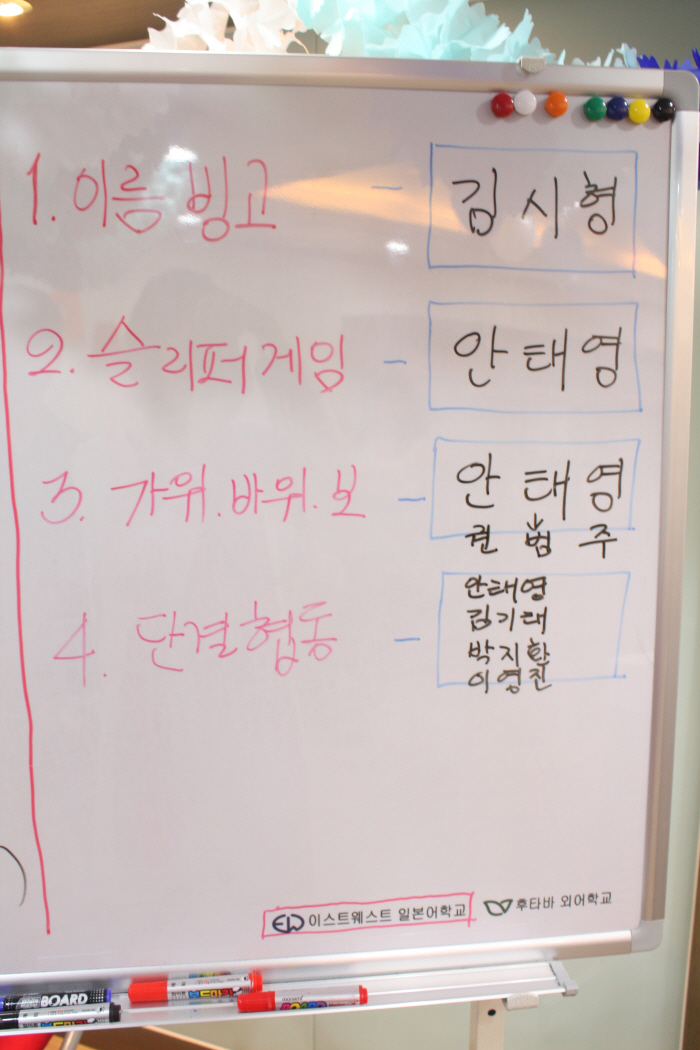 1. 이름 빙고 - 김시형
2. 슬리퍼 게임 - 안태영
3. 가위.바위.보 - 안태영
권범주
4. 단결 협동 - 안태영
김기태
박지환
이영진
EW 이스트웨스트 일본어학교
후타바 외어학교
BOARD